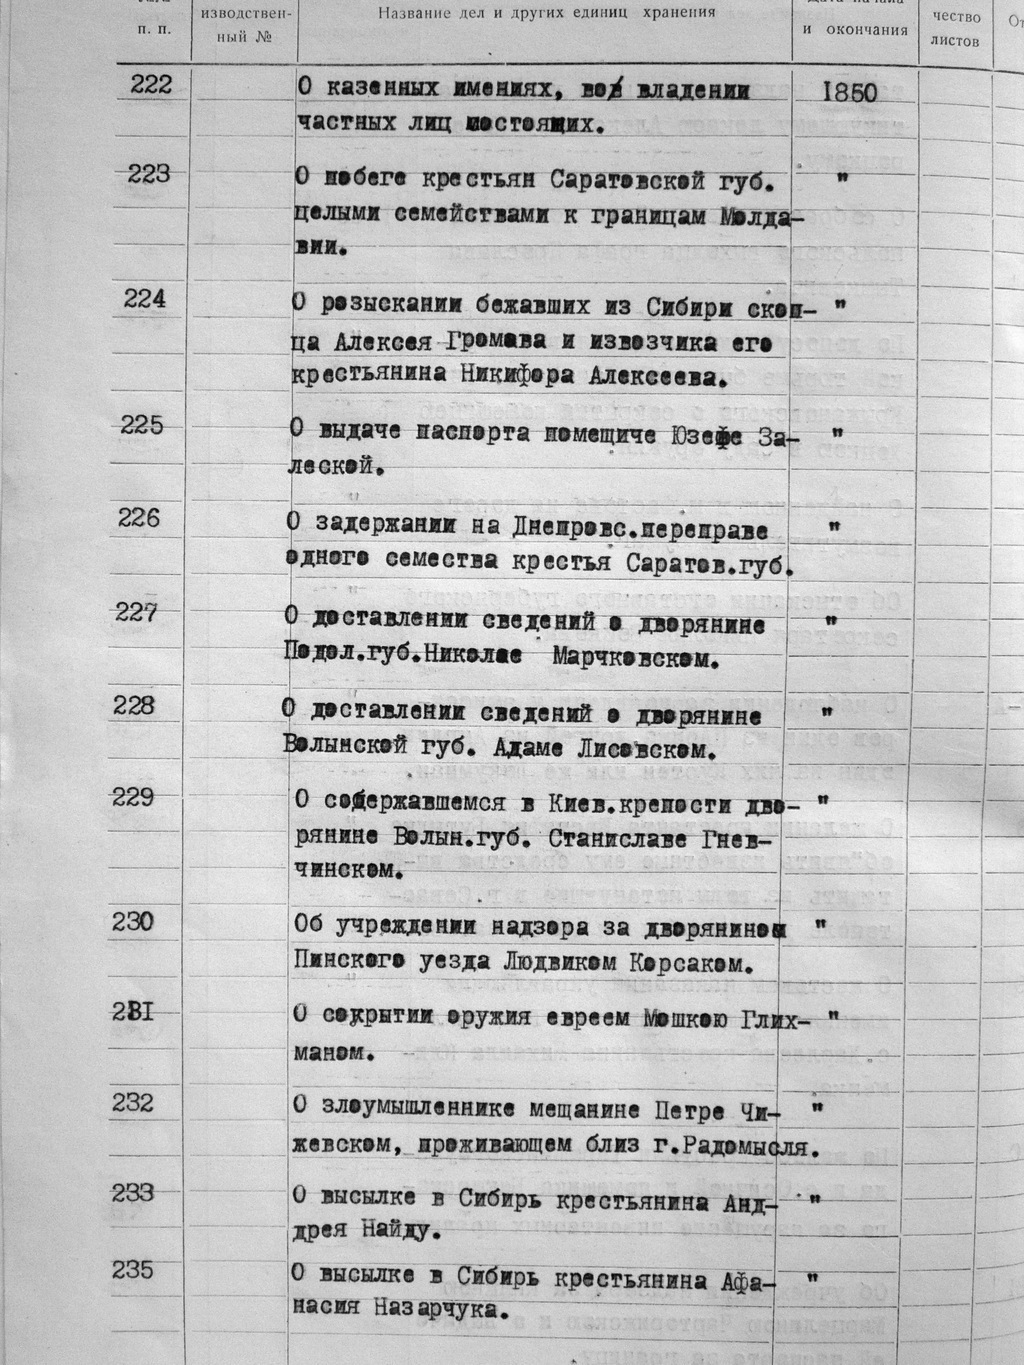 изводствен-
ный №
п. п.
Название дел и других единиц хранения
и окончания
чество
листов
222 О казенных имениях, во владении 1850
частных лиц состоящих.
223 О побеге крестьян Саратовской губ. "
целыми семействами к границам Молда-
вии.
224 О розыскании бежавших из Сибири скоп- "
ца Алексея Громава и извозчика его
крестьянина Никифора Алексеева.
225 О выдаче паспорта помещиче Юзефе За- "
леской.
226 О задержании на Днепровс.переправе "
одного семества крестья Саратов.губ.
227 О доставлении сведений о дворянине "
Подол.губ.Николае Марчковском.
228 О доставлении сведений о дворянине "
Волынской губ. Адаме Лисовском.
229 О содержавшемся в Киев.крепости дво- "
рянине Волын.губ. Станиславе Гнев-
чинском.
230 Об учреждении надзора за дворянином "
Пинского уезда Людвиком Корсаком.
231 О сокрытии оружия евреем Мошкою Глих- "
маном.
232 О злоумышленнике мещанине Петре Чи- "
жевском, проживающем близ г.Радомысля.
233 О высылке в Сибирь крестьянина Анд- "
дрея Найду.
235 О высылке в Сибирь крестьянина Афа- "
насия Назарчука.